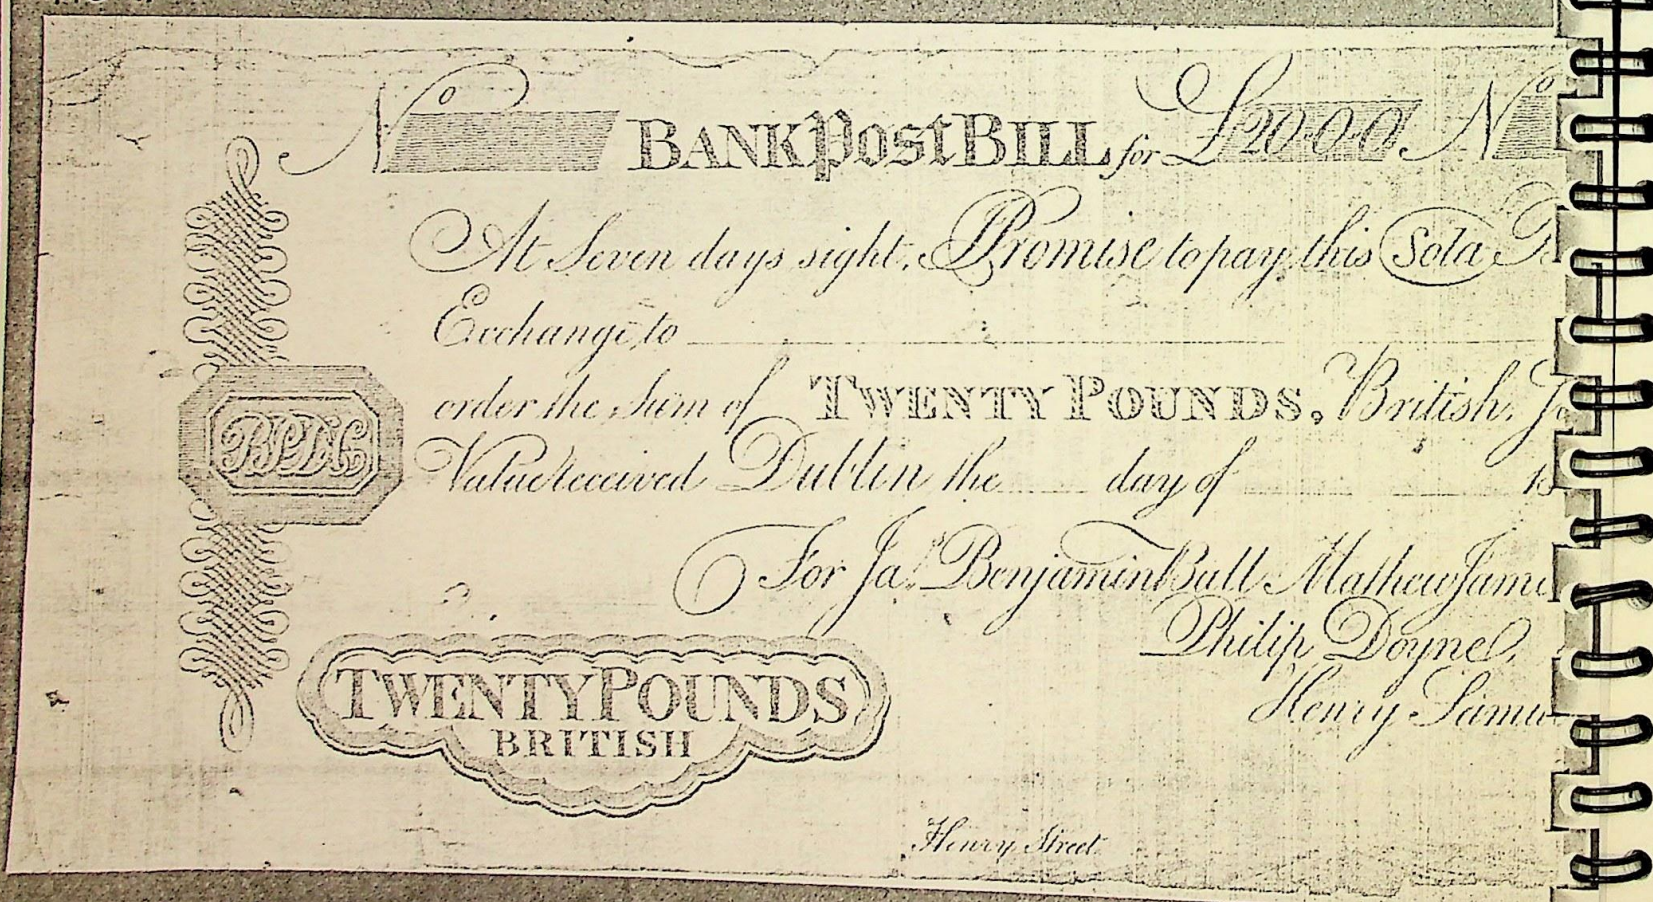 No BANK Post BILL for £20·0·0. No
At Seven days sight, I Promise to pay this Sola
Exchange, to
order the Sum of TWENTY POUNDS, British,
Value received Dublin the day of 18
For Jas. Benjamin Ball Mathew Jame
Philip Doyne,
Henry Samu
BPD&Co
TWENTY POUNDS
BRITISH
Henry Street